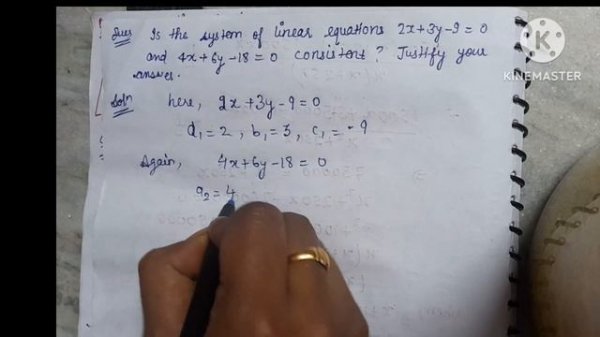 Ques Is the system of linear equations 2x+3y-9=0
and 4x+6y-18=0 consistent? Justify your
answer.
Soln here, 2x+3y-9=0
a₁=2, b₁=3, c₁=-9
Again, 4x+6y-18=0
a₂=4
KINEMASTER